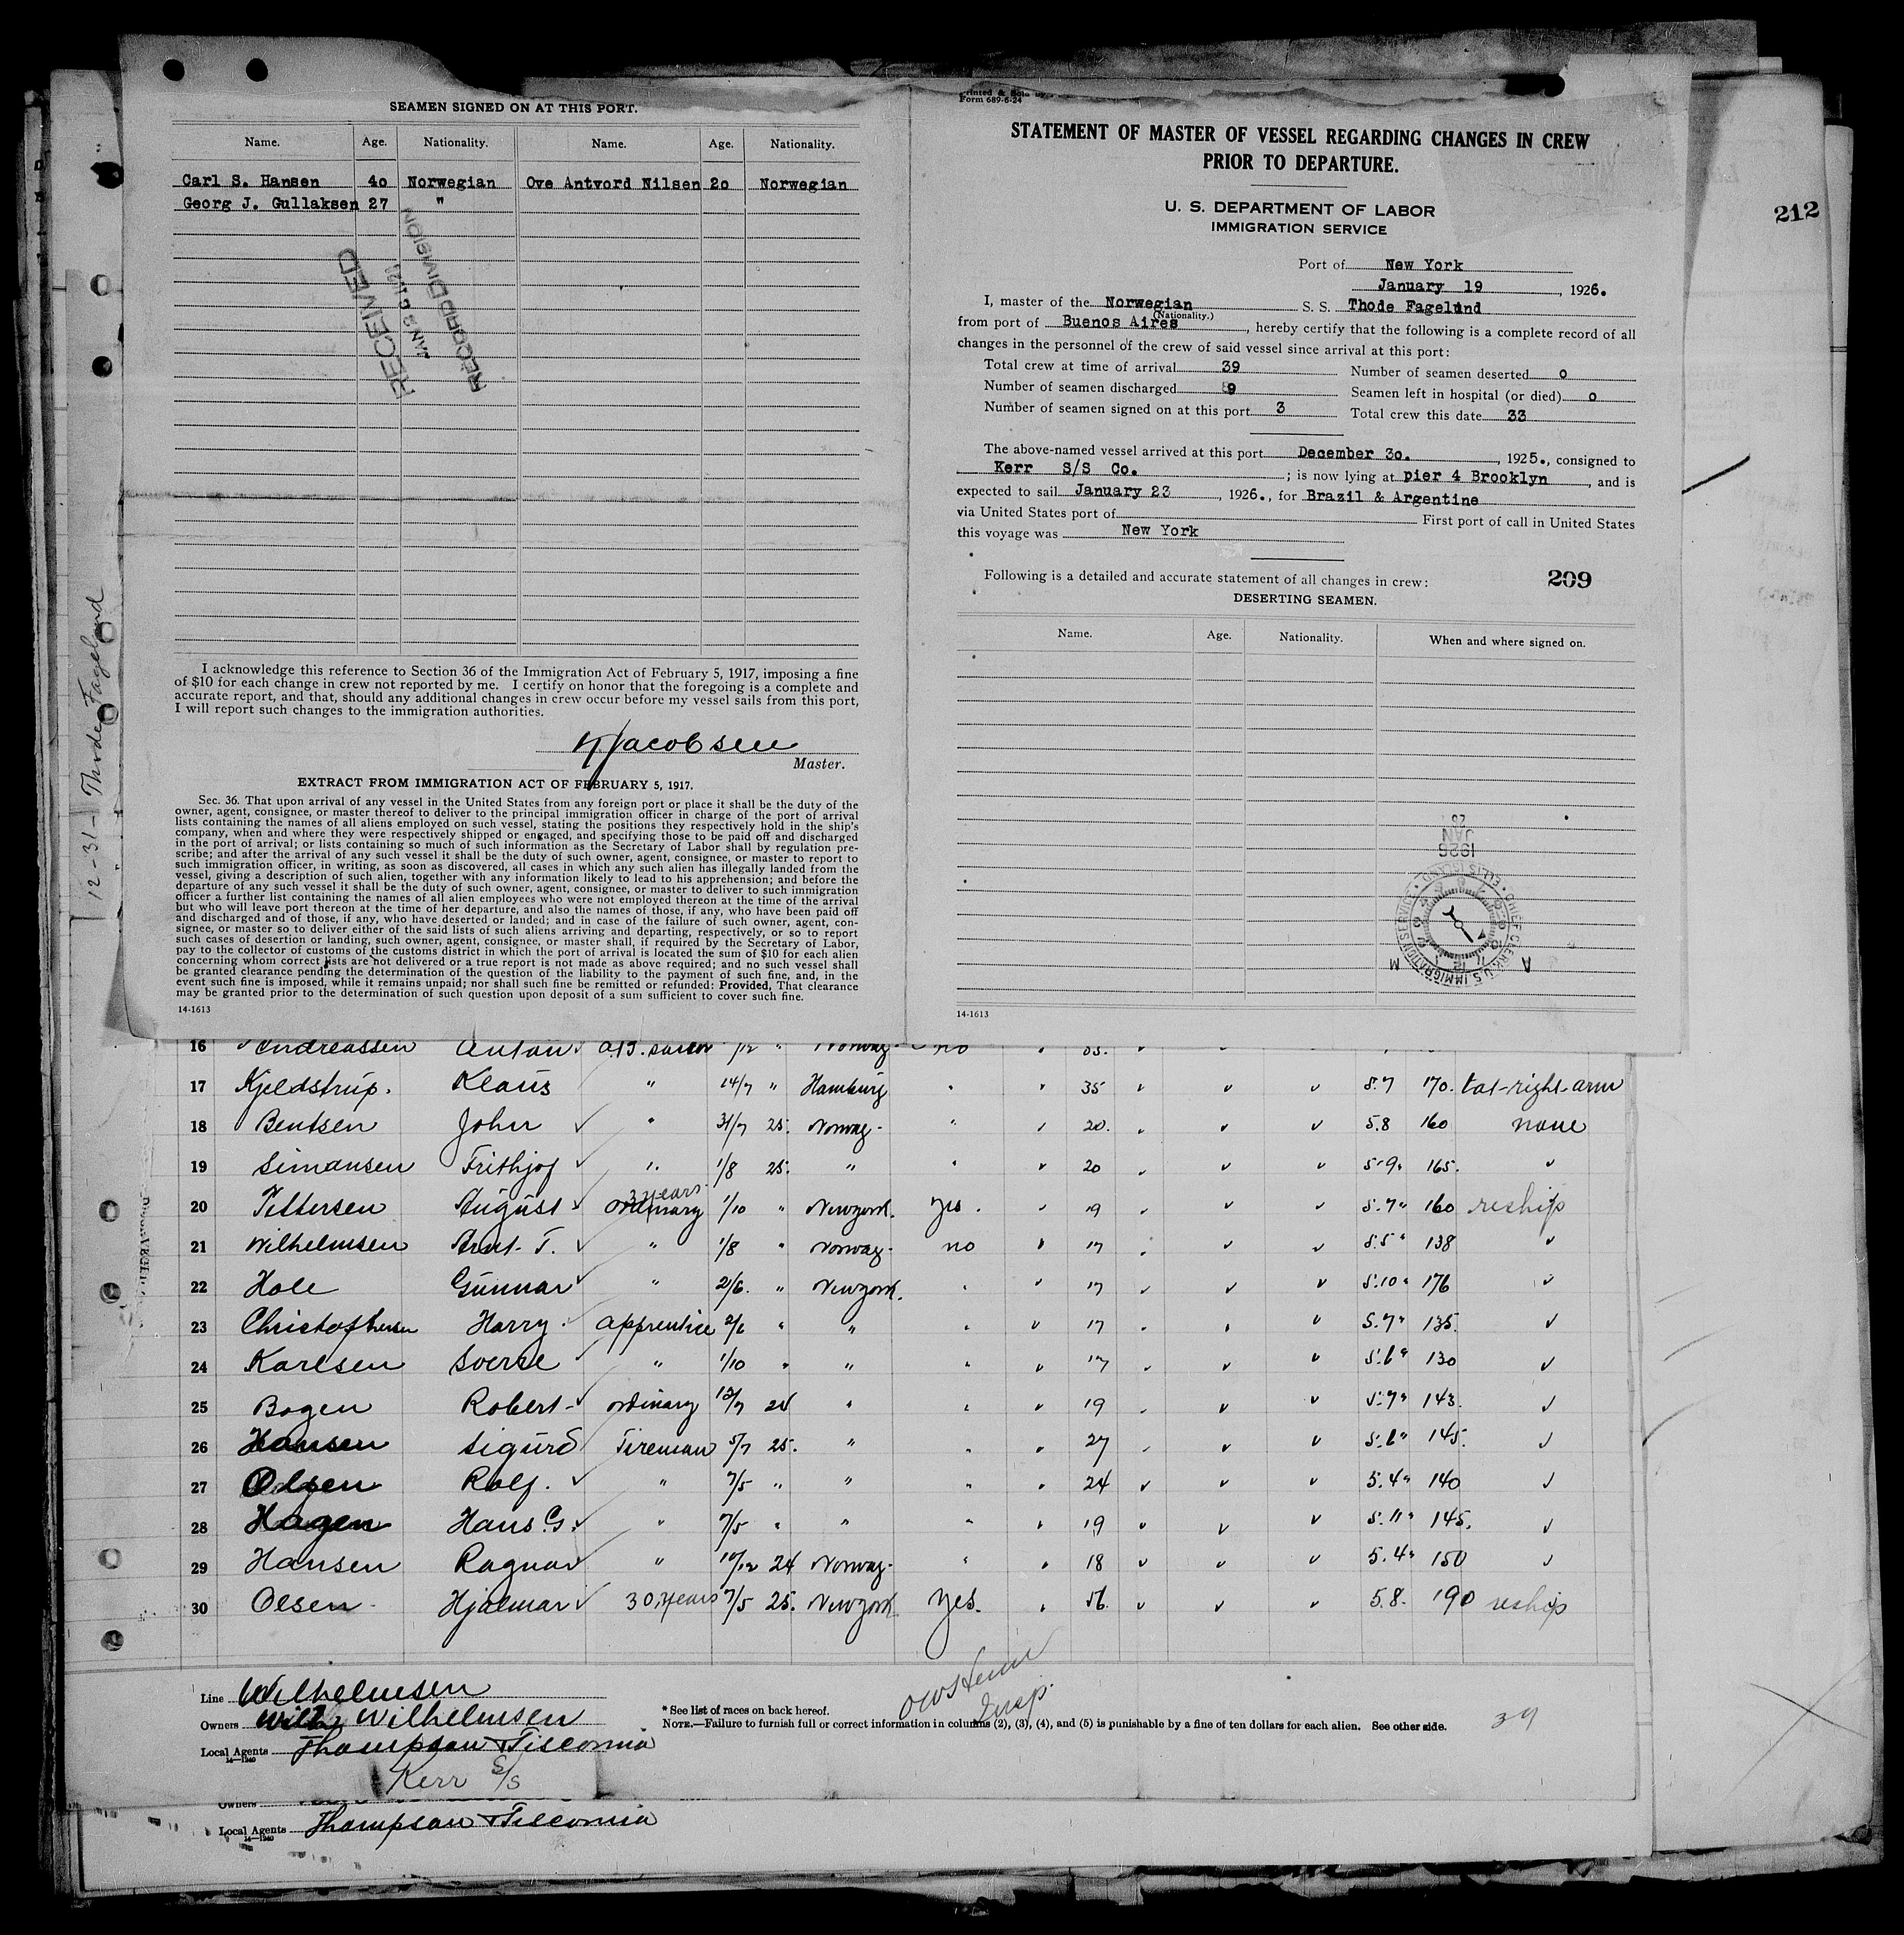 SEAMEN SIGNED ON AT THIS PORT.
Name. Age. Nationality. Name. Age. Nationality.
Carl S. Hansen 40 Norwegian Ove Antvord Nilsen 20 Norwegian
Georg J. Gullaksen 27 "
RECEIVED
RECORD DIVISION
I acknowledge this reference to Section 36 of the Immigration Act of February 5, 1917, imposing a fine
of $10 for each change in crew not reported by me. I certify on honor that the foregoing is a complete and
accurate report, and that, should any additional changes in crew occur before my vessel sails from this port,
I will report such changes to the immigration authorities.
Jacobsen
Master.
EXTRACT FROM IMMIGRATION ACT OF FEBRUARY 5, 1917.
Sec. 36. That upon arrival of any vessel in the United States from any foreign port or place it shall be the duty of the
owner, agent, consignee, or master thereof to deliver to the principal immigration officer in charge of the port of arrival
lists containing the names of all aliens employed on such vessel, stating the positions they respectively hold in the ship's
company, when and where they were respectively shipped or engaged, and specifying those to be paid off and discharged
in the port of arrival; or lists containing so much of such information as the Secretary of Labor shall by regulation pre-
scribe; and after the arrival of any such vessel it shall be the duty of such owner, agent, consignee, or master to report to
such immigration officer, in writing, as soon as discovered, all cases in which any such alien has illegally landed from the
vessel, giving a description of such alien, together with any information likely to lead to his apprehension; and before the
departure of any such vessel it shall be the duty of such owner, agent, consignee, or master to deliver to such immigration
officer a further list containing the names of all alien employees who were not employed thereon at the time of the arrival
but who will leave port thereon at the time of her departure, and also the names of those, if any, who have been paid off
and discharged and of those, if any, who have deserted or landed; and in case of the failure of such owner, agent, con-
signee, or master so to deliver either of the said lists of such aliens arriving and departing, respectively, or so to report
such cases of desertion or landing, such owner, agent, consignee, or master shall, if required by the Secretary of Labor,
pay to the collector of customs of the customs district in which the port of arrival is located the sum of $10 for each alien
concerning whom correct lists are not delivered or a true report is not made as above required; and no such vessel shall
be granted clearance pending the determination of the question of the liability to the payment of such fine, and, in the
event such fine is imposed, while it remains unpaid; nor shall such fine be remitted or refunded: Provided, That clearance
may be granted prior to the determination of such question upon deposit of a sum sufficient to cover such fine.
14-1613
Form 689-6-24
STATEMENT OF MASTER OF VESSEL REGARDING CHANGES IN CREW
PRIOR TO DEPARTURE.
U. S. DEPARTMENT OF LABOR
IMMIGRATION SERVICE
Port of New York
January 19, 1926.
I, master of the Norwegian S. S. Thode Fagelund
(Nationality.)
from port of Buenos Aires, hereby certify that the following is a complete record of all
changes in the personnel of the crew of said vessel since arrival at this port:
Total crew at time of arrival 39 Number of seamen deserted 0
Number of seamen discharged 9 Seamen left in hospital (or died) 0
Number of seamen signed on at this port 3 Total crew this date 33
The above-named vessel arrived at this port December 30., 1925., consigned to
Kerr S/S Co. ; is now lying at pier 4 Brooklyn, and is
expected to sail January 23, 1926., for Brazil & Argentine
via United States port of First port of call in United States
this voyage was New York
Following is a detailed and accurate statement of all changes in crew: 209
DESERTING SEAMEN.
Name. Age. Nationality. When and where signed on.
1926
JAN
CHIEF CLERK, U.S. IMMIGRATION SERVICE ELLIS ISLAND
A M
14-1613
212
12-31- Thode Fageland
16 Andreassen Anton no
17 Kjeldstrup. Klaus " 14/7 " Hamburg " 35 5.7 170. tat-right-arm
18 Bentsen John " 31/7 25. Norway - " 20. 5.8 160 none
19 Simonsen Frithjof " 1/8 25. " " 20 5-9" 165.
20 Pettersen August 3 years ordinary 1/10 " Newyork. Yes. 19 5.7" 160 reship
21 Wilhelmsen Arnt. T. " 1/8 " Norway - no 17 5.5" 138
22 Hole Gunnar " 2/6. " Newyork. " 17 5.10" 176
23 Christophersen Harry. apprentice 2/6 " " " 17 5.7" 135.
24 Karlsen Sverre " 1/10 " " " 17 5.6" 130
25 Bogen Robert - ordinary 12/7 24 " " 19 5.7" 143.
26 Hansen Sigurd Fireman 5/7 25. " " 27 5.6" 145.
27 Olsen Rolf. " 7/5 " " " 24 5.4" 140
28 Hagen Hans G. " 7/5 " " " 19 5.11" 145.
29 Hansen Ragnar " 10/12 24 Norway - " 18 5.4" 150
30 Olsen Hjalmar 30 years 7/5 25. Newyork. Yes. 56. 5.8. 190 reship
Line Wilhelmsen
Owners Wilh. Wilhelmsen
Local Agents Thompson & Tisconnia
14-1240
Kerr S/S
* See list of races on back hereof.
NOTE.—Failure to furnish full or correct information in columns (2), (3), (4), and (5) is punishable by a fine of ten dollars for each alien. See other side.
Insp.
39
Owners
Local Agents Thompson & Tisconnia
14-1240